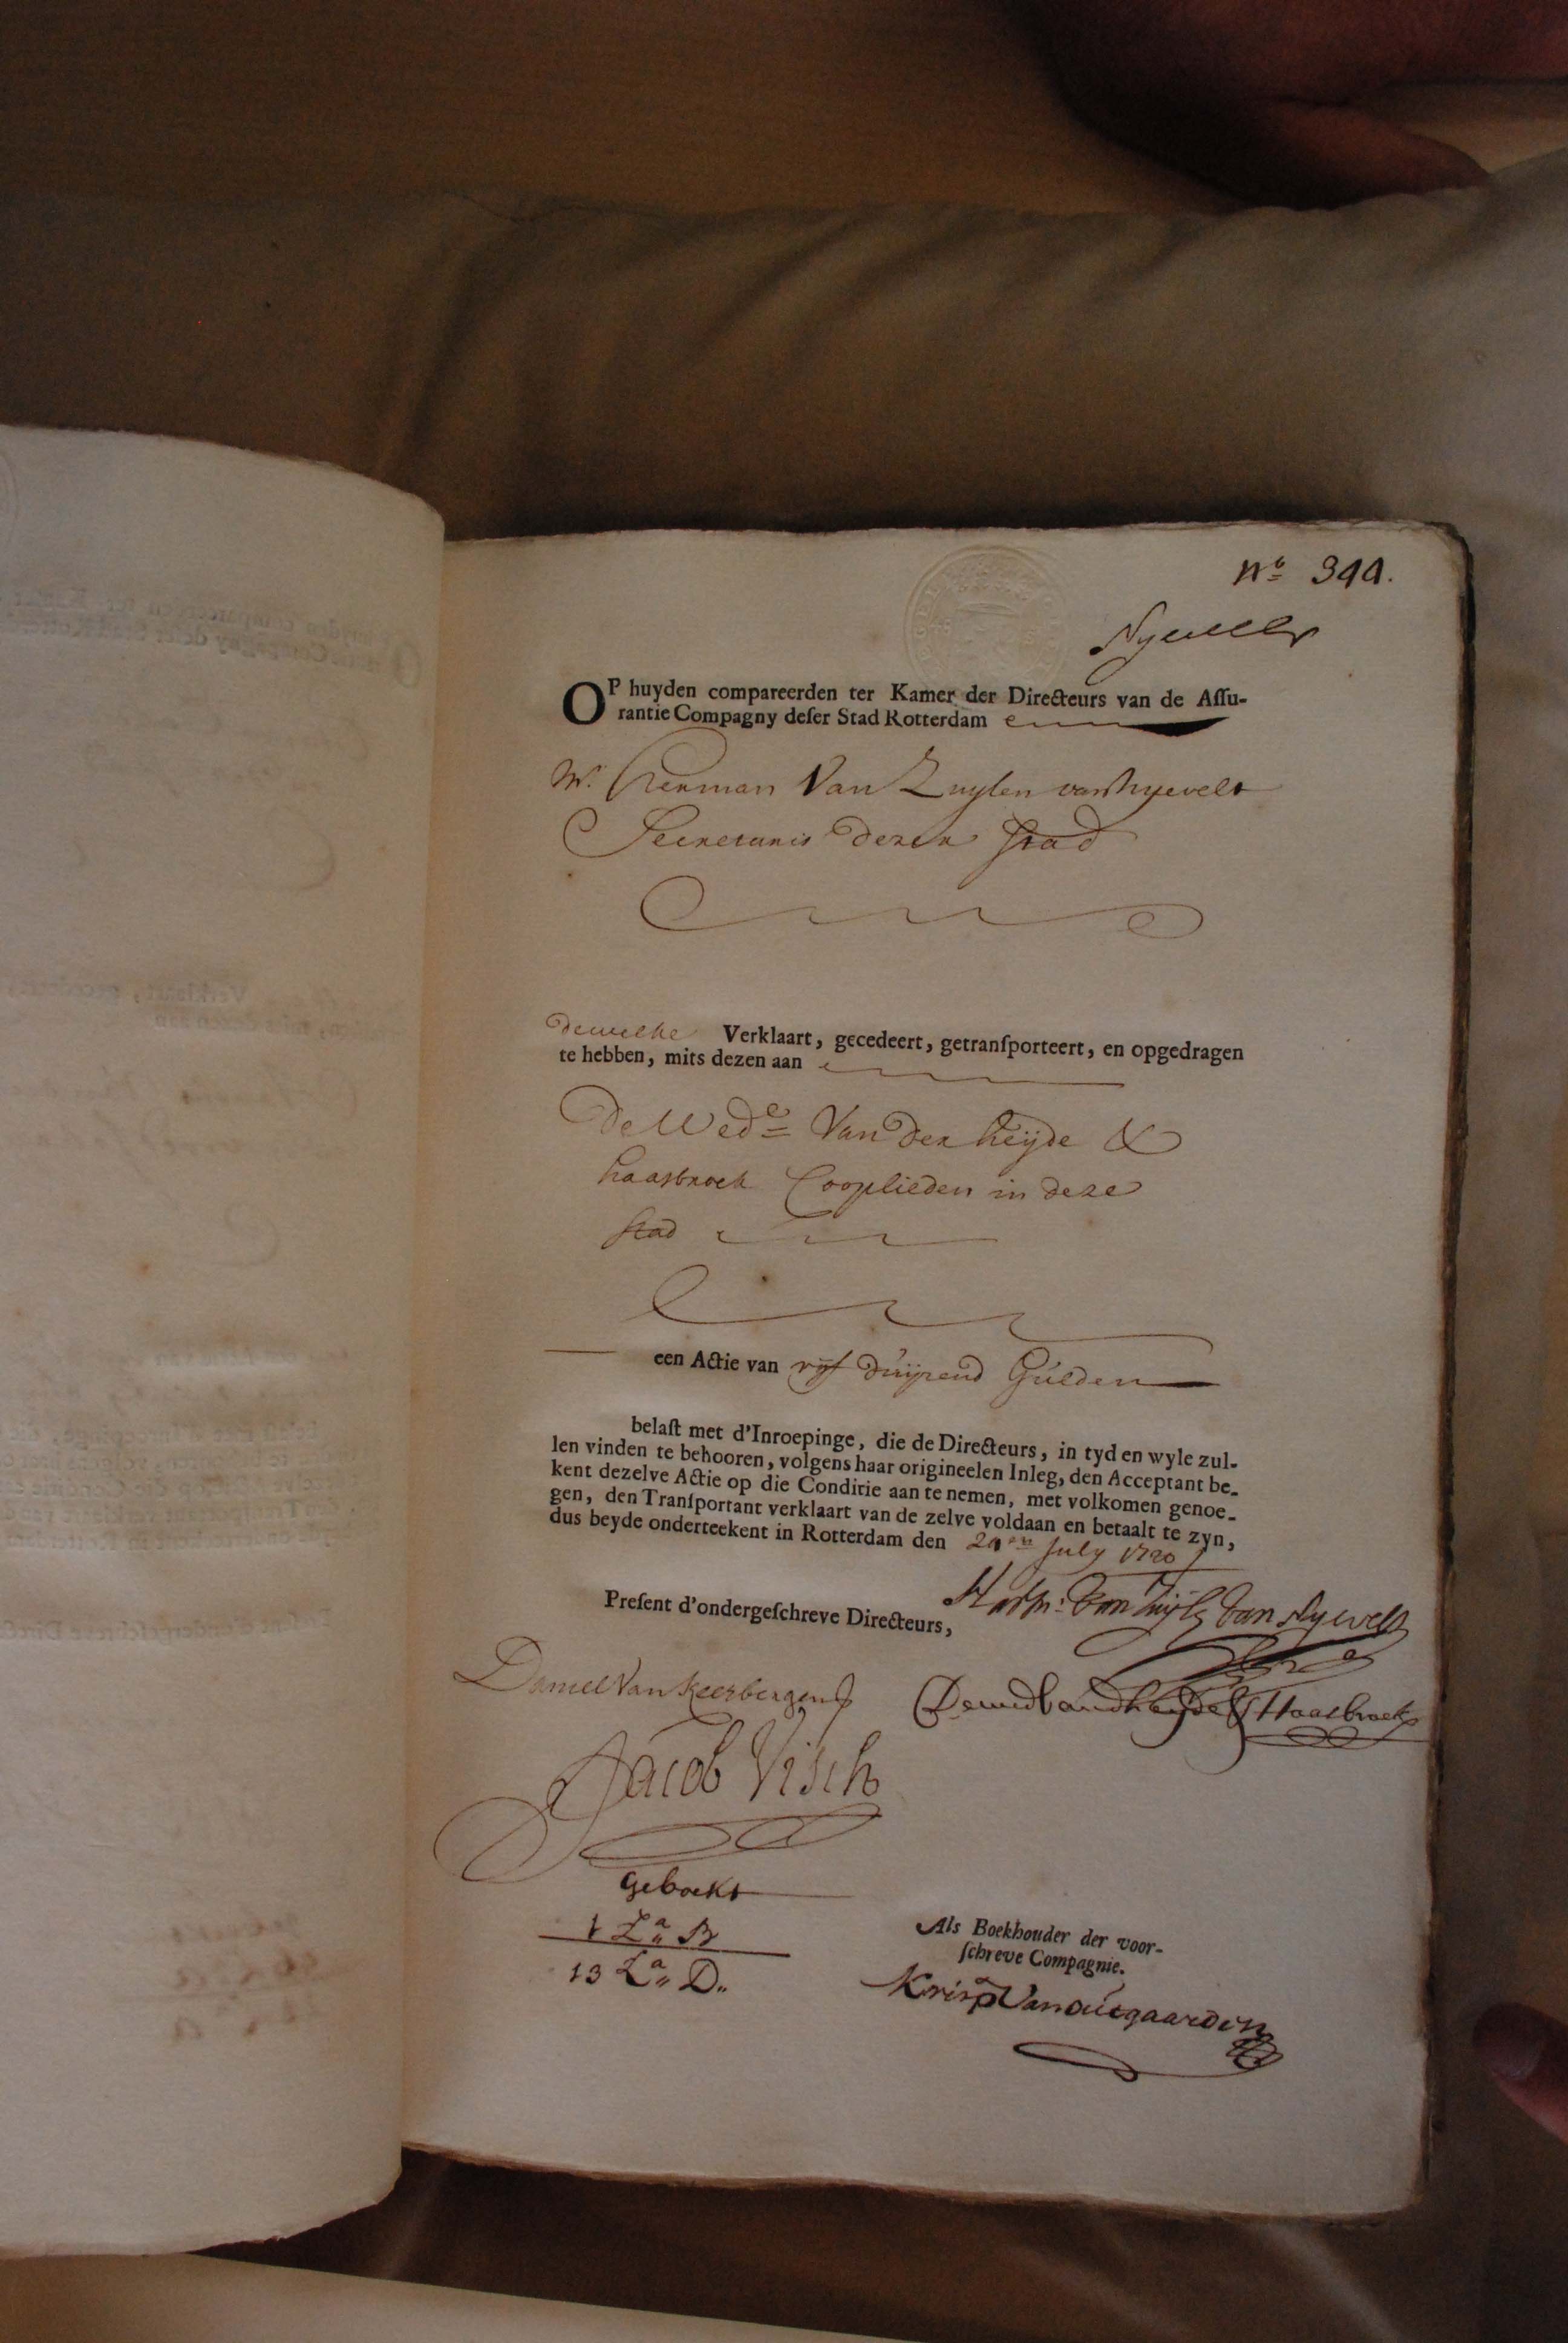 No 344.
Nyevelt
OP huyden compareerden ter Kamer der Directeurs van de Aſſu-
rantie Compagny deſer Stad Rotterdam
Mr. Herman Van Zuylen van Nyevelt
Secretaris dezer Stad
dewelke Verklaart, gecedeert, getranſporteert, en opgedragen
te hebben, mits dezen aan
De Wede Van der heijde &
haasbroek Cooplieden in deze
stad
een Actie van vijf duijzend Gulden
belaſt met d'Inroepinge, die de Directeurs, in tyd en wyle zul-
len vinden te behooren, volgens haar origineelen Inleg, den Acceptant be-
kent dezelve Actie op die Conditie aan te nemen, met volkomen genoe-
gen, den Tranſportant verklaart van de zelve voldaan en betaalt te zyn,
dus beyde onderteekent in Rotterdam den July 1720
Preſent d'ondergeſchreve Directeurs,
Harm: van Zuijle van Nyevelt
Daniel Van Keerbergen
De wed van dheyde & Haasbroek
Jacob Visch
Geboekt
1 La B
13 La D
Als Boekhouder der voor-
ſchreve Compagnie.
Krisp Van Outgaarden